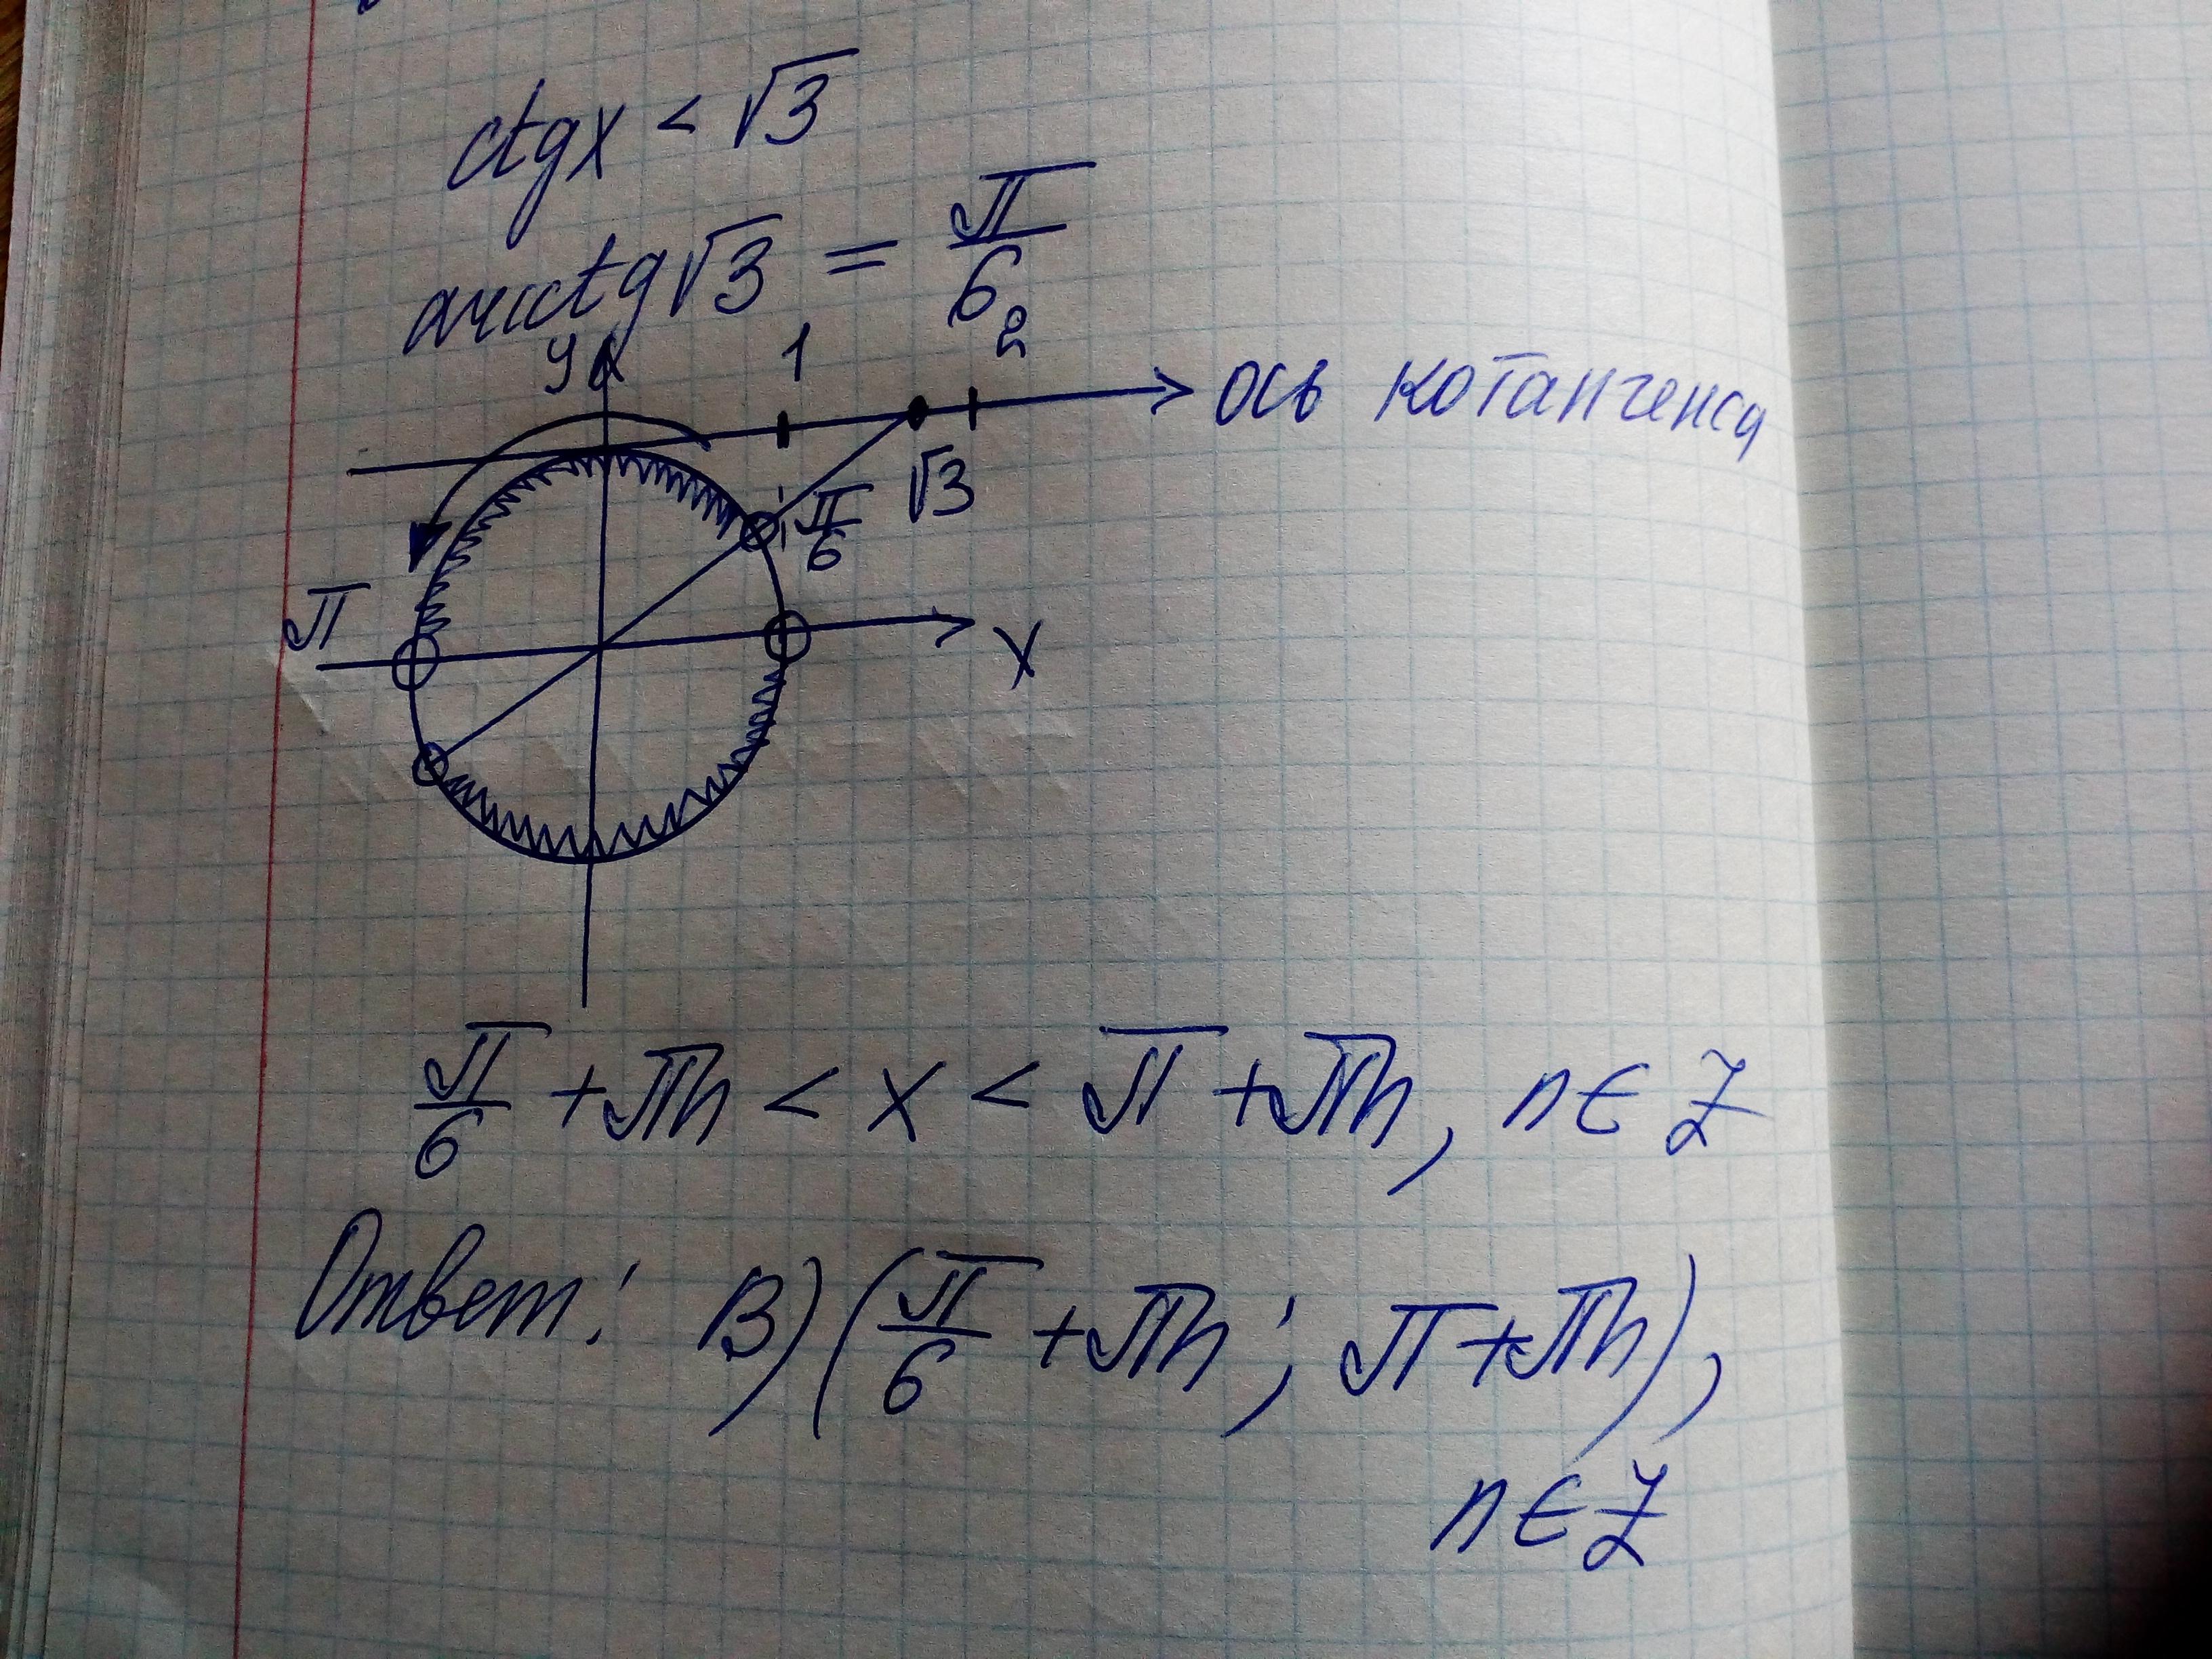 ctgx < √3
arcctg√3 = π/6
y 1 2
ось котангенса
√3
π/6
π
x
π/6 + πn < x < π + πn, n ∈ Z
Ответ: В) (π/6 + πn; π + πn),
n ∈ Z